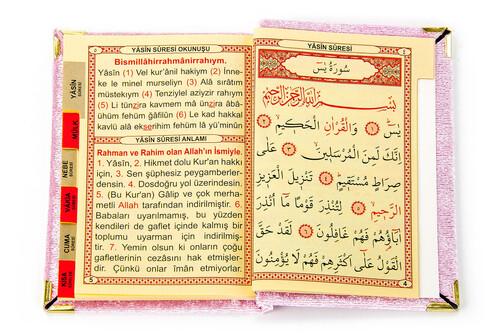 YÂSİN SÛRESİ OKUNUŞU
Bismillâhirrahmânirrahıym.
Yâsîn (1) Vel kur'ânil hakiym (2) İnne-
ke le minel murseliyn. (3) Alâ sırâtım
müstekıym (4) Tenziylel aziyzir rahıym
(5) Li tünzira kavmem mâ ünzira âbâ-
ühüm fehüm ğâfilûn (6) Le kad hakkal
kavlü alâ ekserihim fehüm lâ yü'minûn
YÂSÎN SÛRESİ ANLAMI
Rahman ve Rahim olan Allah'ın İsmiyle.
1. Yâsîn, 2. Hikmet dolu Kur'an hakkı
için, 3. Sen şüphesiz peygamberler-
densin. 4. Dosdoğru yol üzerindesin.
5. (Bu Kur'an) Gâlip ve çok merha-
metli Allah tarafından indirilmiştir. 6.
Babaları uyarılmamış, bu yüzden
kendileri de gaflet içinde kalmış bir
toplumu uyarman için indirilmiş-
tir. 7. Yemin olsun ki onların çoğu
gafletlerinin cezasını hak etmişler-
dir. Çünkü onlar îmân etmiyorlar.
5
YÂSİN
SÛRESİ
MÜLK
NEBE
SÛRESİ
VAKIA
CUMA
SÛRESİ
KISA
YÂSÎN SÛRESİ
سُورَةُ يٰسٓ
بِسْمِ اللّٰهِ الرَّحْمٰنِ الرَّحِيمِ
يٰسٓ ﴿١﴾ وَالْقُرْاٰنِ الْحَكِيمِ ﴿٢﴾
اِنَّكَ لَمِنَ الْمُرْسَلِينَ ﴿٣﴾ عَلٰى
صِرَاطٍ مُسْتَقِيمٍ ﴿٤﴾ تَنْزِيلَ الْعَزِيزِ
الرَّحِيمِ ﴿٥﴾ لِتُنْذِرَ قَوْمًا مَٓا اُنْذِرَ
اٰبَٓاؤُهُمْ فَهُمْ غَافِلُونَ ﴿٦﴾ لَقَدْ حَقَّ
الْقَوْلُ عَلٰٓى اَكْثَرِهِمْ فَهُمْ لَا يُؤْمِنُونَ
4